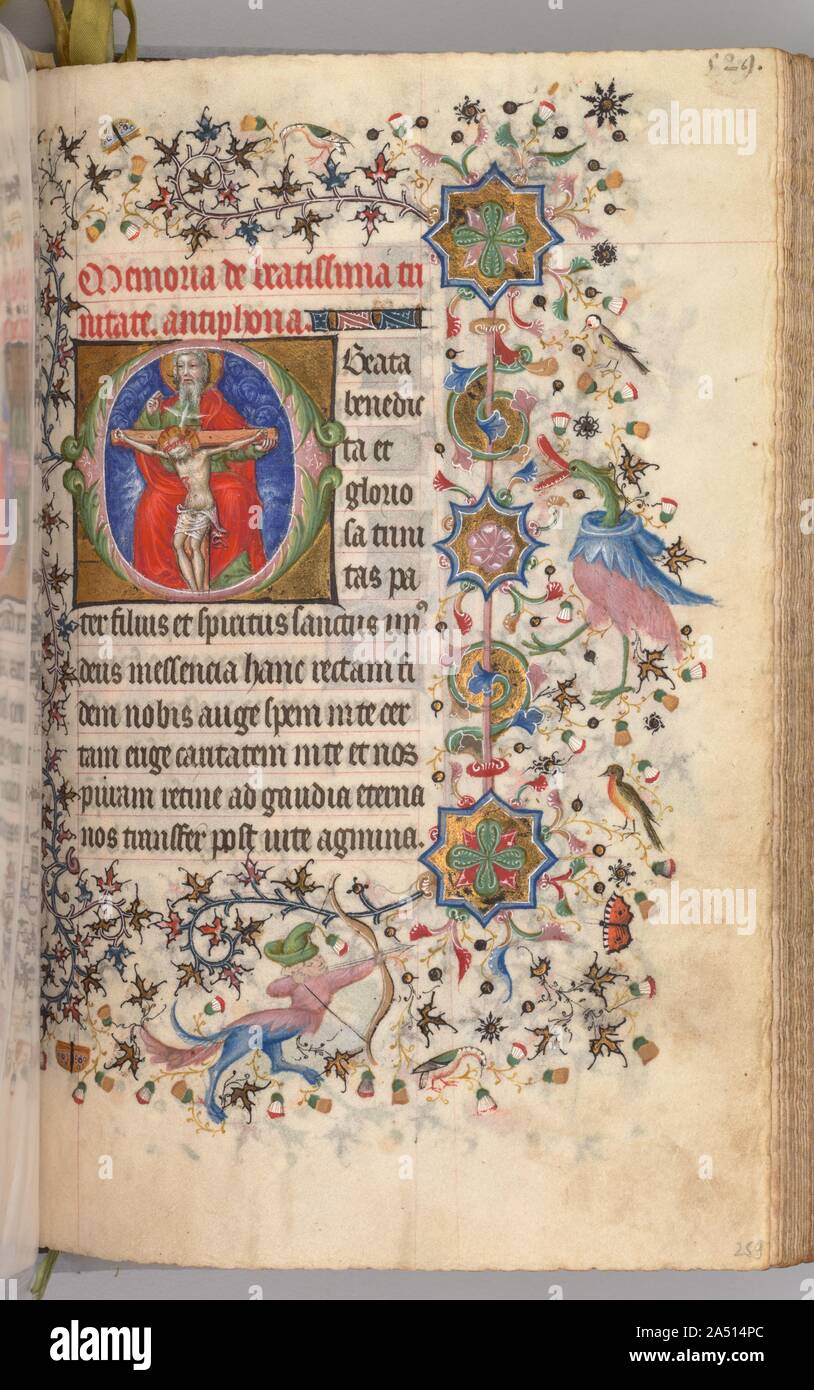 529.
Memoria de beatissima tri
nitate. antiphona.
O Beata
benedic
ta et
glorio
sa trini
tas pa
ter filius et spiritus sanctus un'
deus in essencia hanc rectam fi
dem nobis auge spem in te cer
tam euge caritatem in te et nos
puram retine ad gaudia eterna
nos transfer post vite agmina.
259
alamy
Image ID: 2A514PC
www.alamy.com